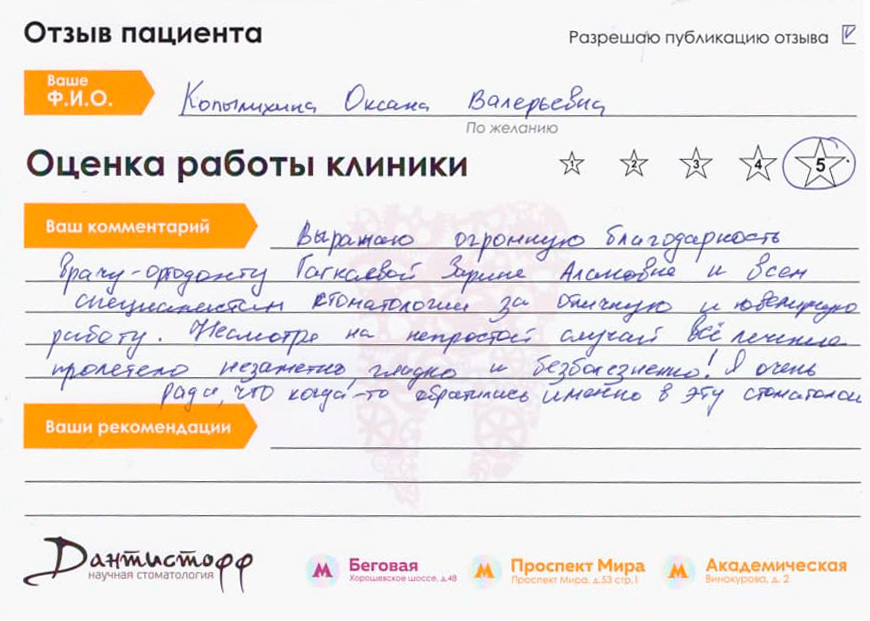 Отзыв пациента
Разрешаю публикацию отзыва
Ваше
Ф.И.О.
Копылихина Оксана Валерьевна
По желанию
Оценка работы клиники
1 2 3 4 5
Ваш комментарий
Выражаю огромную благодарность
врачу-ортодонту Гаткаевой Зарине Алановне и всем
специалистам стоматологии за отличную и ювелирную
работу. Несмотря на непростой случай всё лечение
пролетело незаметно, гладко и безболезненно! Я очень
рада, что когда-то обратились именно в эту стоматологи
Ваши рекомендации
Дантистофф
научная стоматология
Беговая
Хорошевское шоссе, д.48
Проспект Мира
Проспект Мира, д.53 стр.1
Академическая
Винокурова, д. 2